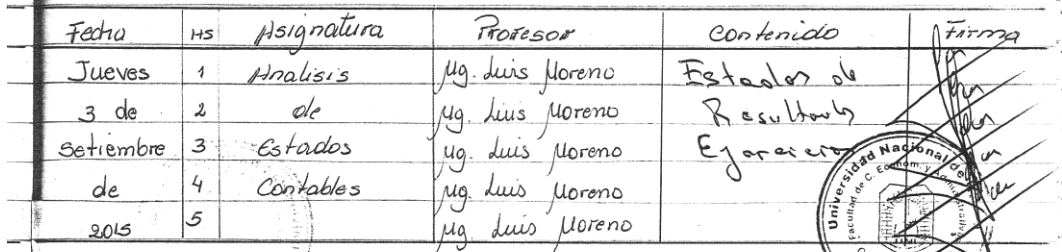 Fecha HS Asignatura Profesor Contenido Firma
Jueves 1 Analisis Mg. Luis Moreno Estados de
3 de 2 de Mg. Luis Moreno Resultados
Setiembre 3 Estados Mg. Luis Moreno Ejercicios
de 4 Contables Mg. Luis Moreno
2015 5 Mg Luis Moreno
Universidad Nacional de
Facultad de C. Econom. y Administrativas